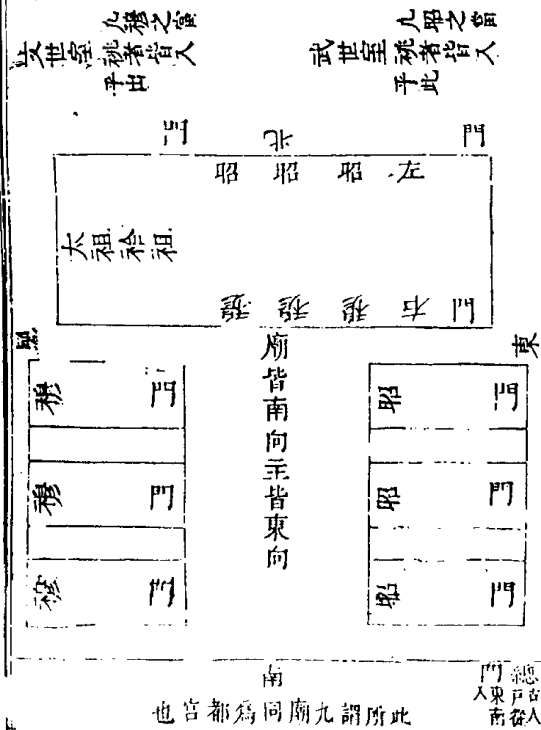 凡昭之當
武世室祧者皆入
乎此
凡穆之當
文世室祧者皆入
乎此
門
北
門
左昭昭昭
太祖祫祖
門右穆穆穆
東
廟皆南向主皆東向
昭 門
昭 門
昭 門
穆 門
穆 門
穆 門
南
總門
古人戶從東南入
此所謂九廟同爲都宮也